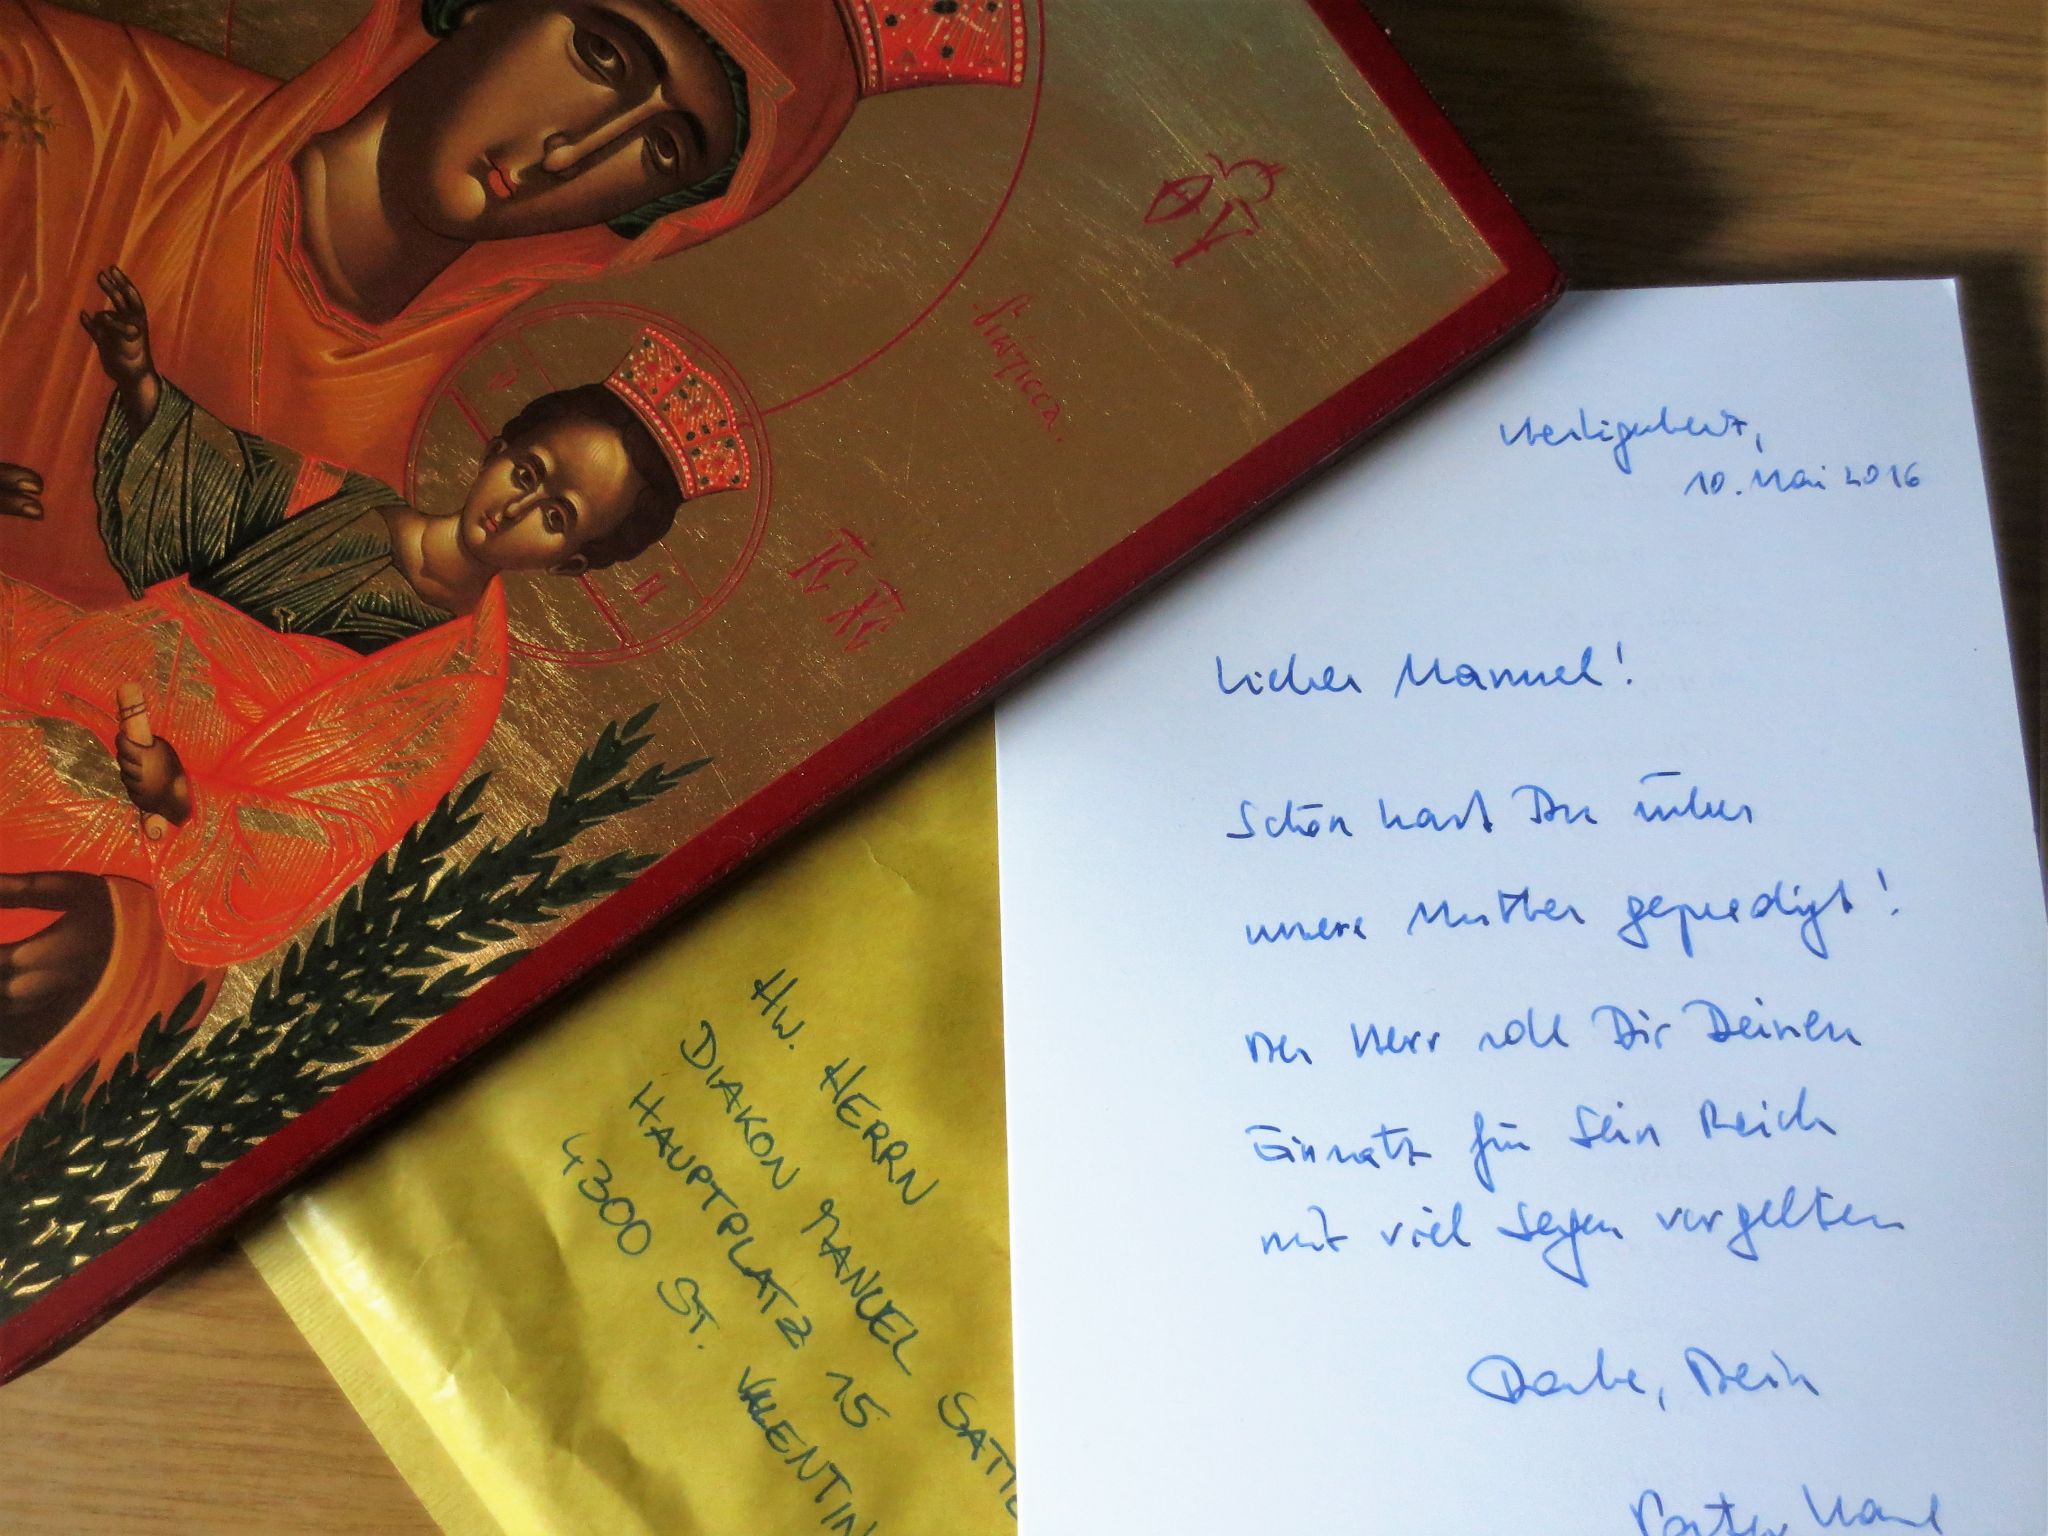 Heiligenkreuz,
10. Mai 2016
Lieber Manuel!
Schön hast Du über
unsere Mutter gepredigt!
Der Herr soll Dir Deinen
Einsatz für Sein Reich
mit viel Segen vergelten
Danke, Dein
Pater Karl
HW. HERRN
DIAKON MANUEL SATTL
HAUPTPLATZ 15
4300 ST. VALENTIN
ΙϹ ΧϹ